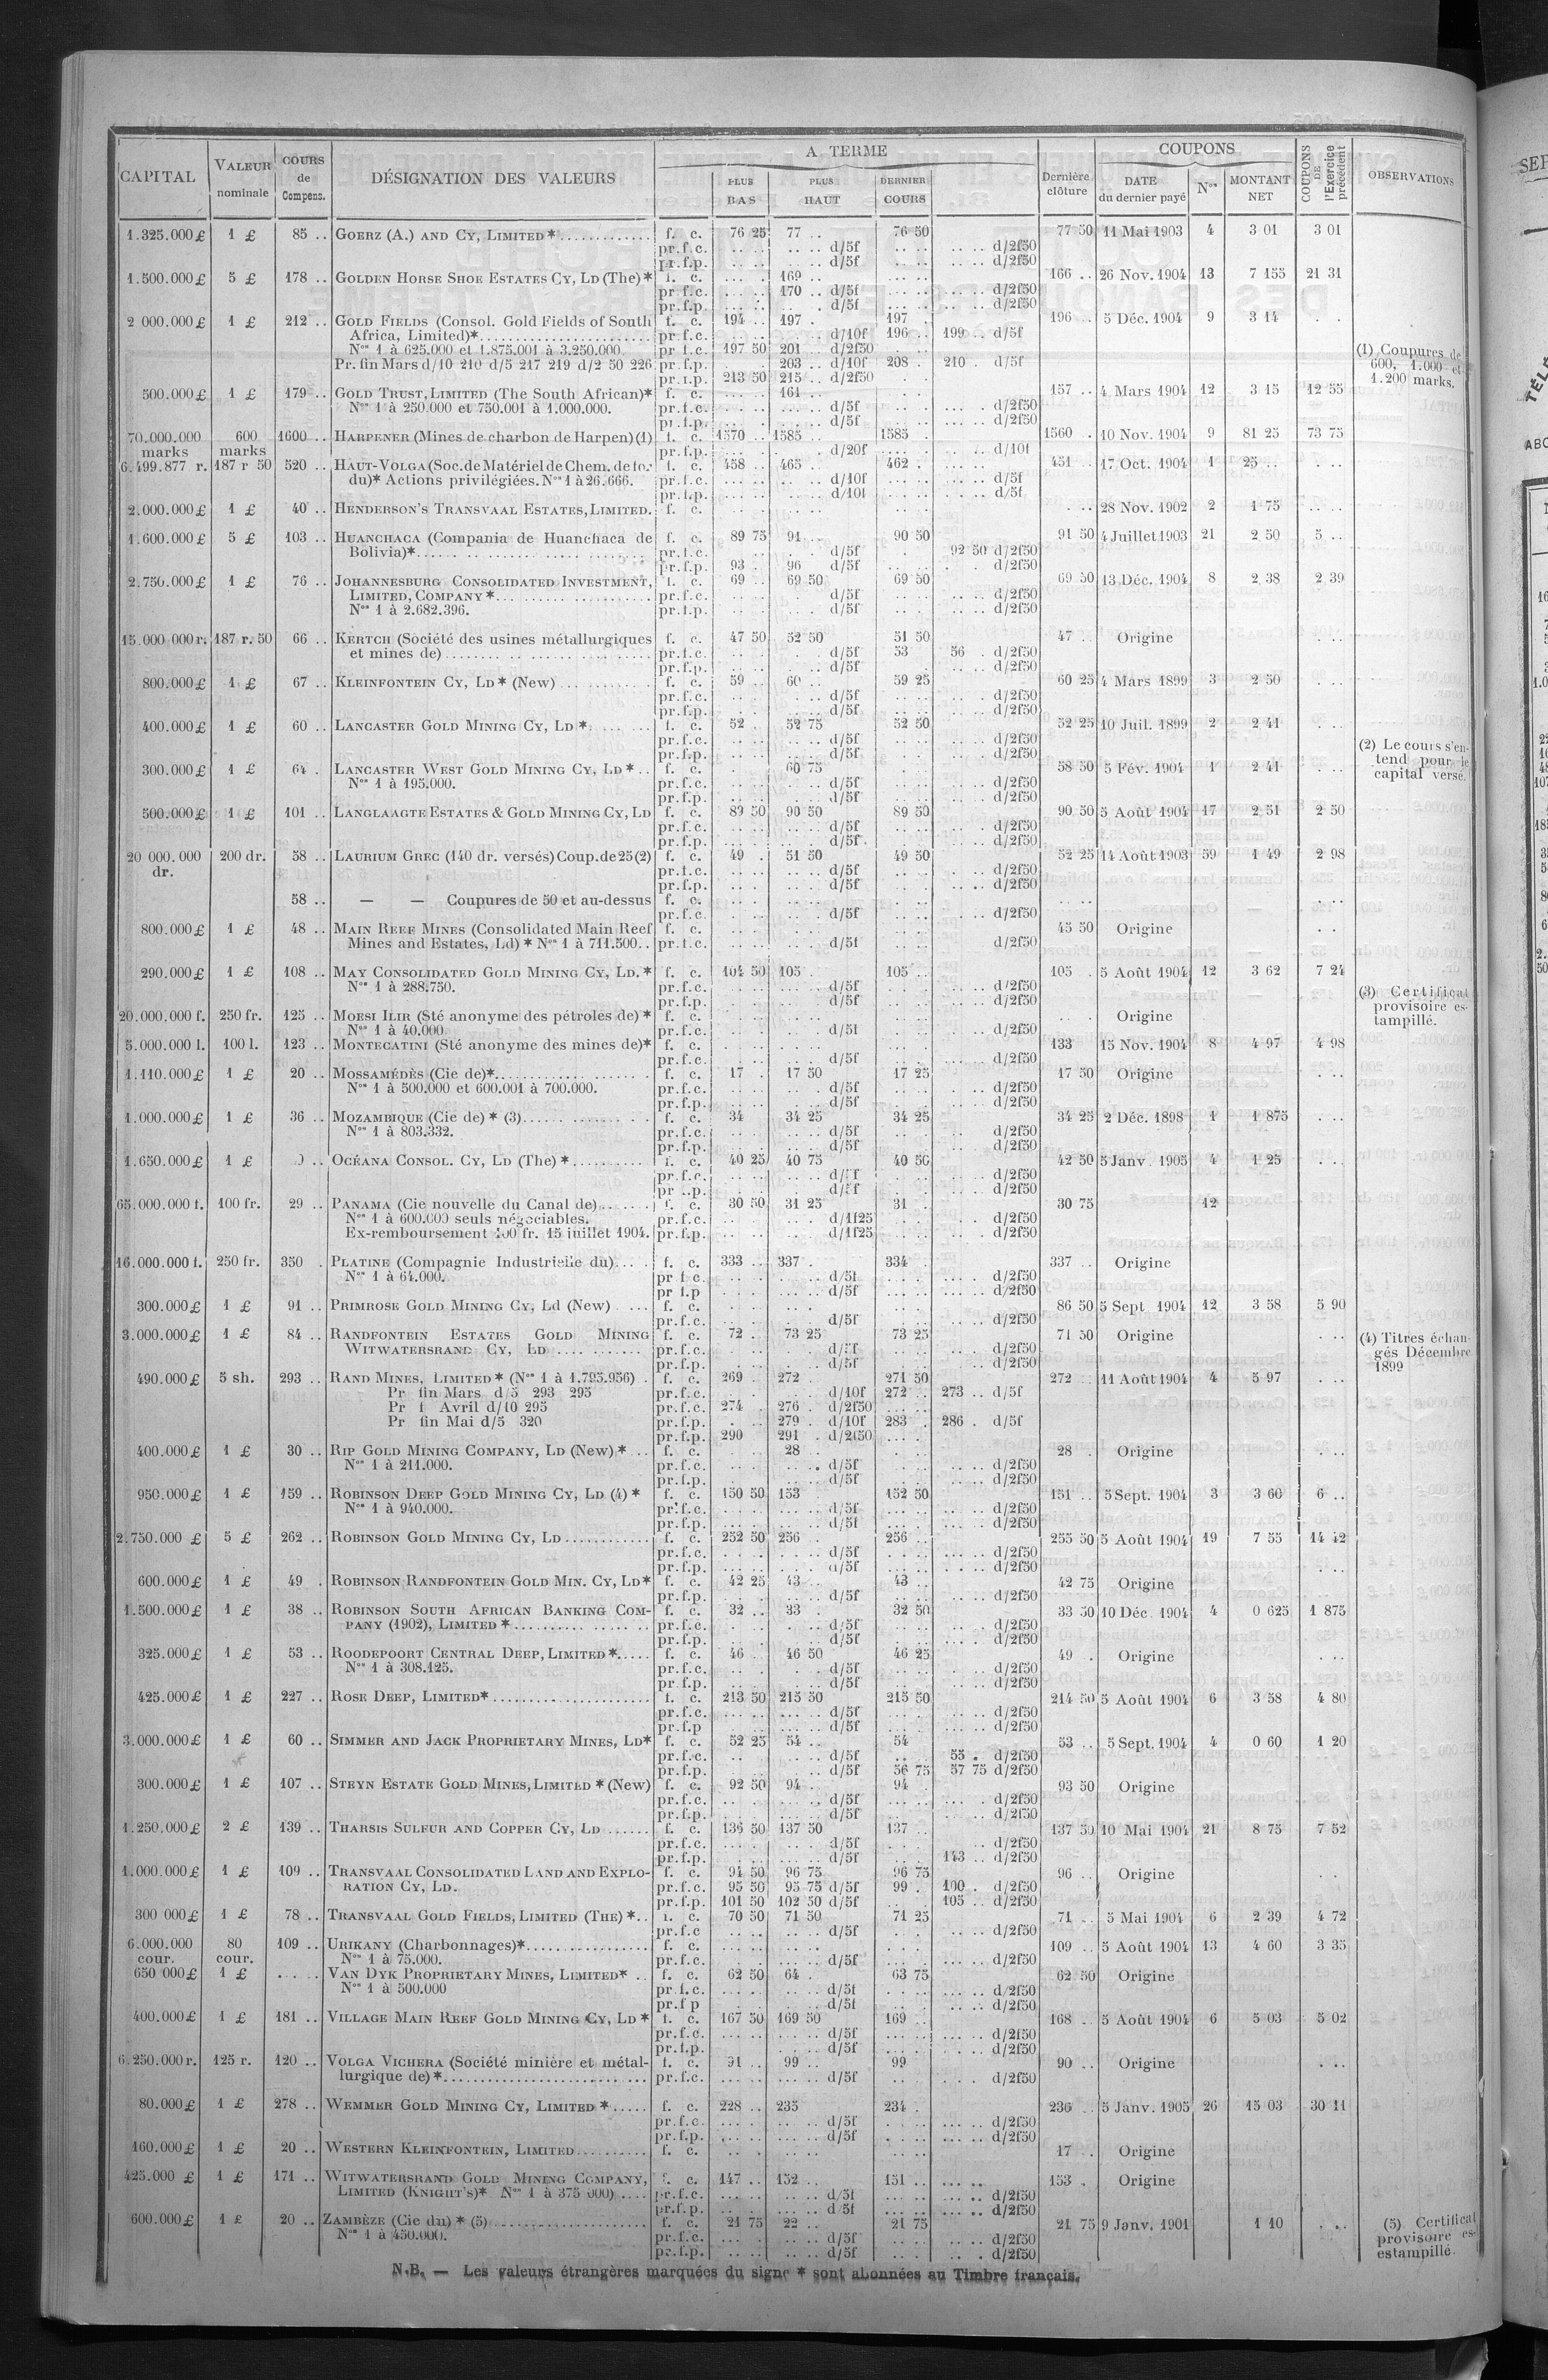 CAPITAL VALEUR nominale COURS de Compens. DÉSIGNATION DES VALEURS A TERME PLUS BAS PLUS HAUT DERNIER COURS Dernière clôture COUPONS DATE du dernier payé Nos MONTANT NET COUPONS DE l'Exercice précédent OBSERVATIONS
1.325.000 £ 1 £ 85 .. GOERZ (A.) AND CY, LIMITED * f. c. 76 25 77 .. 76 50 77 50 11 Mai 1903 4 3 01 3 01
pr.f.c. d/5f d/2f50
pr.f.p. d/5f d/2f50
1.500.000 £ 5 £ 178 .. GOLDEN HORSE SHOE ESTATES CY, LD (The) * f. c. 169 .. 166 .. 26 Nov. 1904 13 7 155 21 31
pr.f.c. 170 .. d/5f d/2f50
pr.f.p. d/5f d/2f50
2 000.000 £ 1 £ 212 .. GOLD FIELDS (Consol. Gold Fields of South f. c. 194 .. 197 . 197 . 196 .. 5 Déc. 1904 9 3 14 . .
Africa, Limited)* pr.f.c. d/10f 196 .. 199 .. d/5f
Nos 1 à 625.000 et 1.875.001 à 3.250.000. pr f.c. 197 50 201 .. d/2f50
Pr. fin Mars d/10 210 d/5 217 219 d/2 50 226 pr.f.p. 203 .. d/10f 208 . 210 . d/5f
pr.f.p. 213 50 215 .. d/2f50
(1) Coupures de
600, 1.000 et
1.200 marks.
500.000 £ 1 £ 179 .. GOLD TRUST, LIMITED (The South African)* f. c. 161 .. 157 .. 4 Mars 1904 12 3 15 12 55
Nos 1 à 250.000 et 750.001 à 1.000.000. pr.f.c. d/5f d/2f50
pr.f.p. d/5f d/2f50
70.000.000 marks 600 marks 1600 .. HARPENER (Mines de charbon de Harpen) (1) f. c. 1570 .. 1585 .. 1585 . 1560 . 10 Nov. 1904 9 81 25 73 75
pr.f.p. d/20f d/10f
6.499.877 r. 187 r 50 520 .. HAUT-VOLGA (Soc. de Matériel de Chem. de fer f. c. 458 .. 465 .. 462 . 451 .. 17 Oct. 1904 1 25 ..
du)* Actions privilégiées. Nos 1 à 26.666. pr.f.c. d/10f d/5f
pr.f.p. d/10f d/5f
2.000.000 £ 1 £ 40 .. HENDERSON'S TRANSVAAL ESTATES, LIMITED. f. c. 28 Nov. 1902 2 1 75
1.600.000 £ 5 £ 103 .. HUANCHACA (Compania de Huanchaca de f. c. 89 75 91 .. 90 50 91 50 4 Juillet 1903 21 2 50 5 ..
Bolivia)* pr.f.c. d/5f 92 50 d/2f50
pr.f.p. 93 . 96 d/5f d/2f50
2.750.000 £ 1 £ 76 .. JOHANNESBURG CONSOLIDATED INVESTMENT, f. c. 69 .. 69 50 69 50 69 50 13 Déc. 1904 8 2 38 2 39
LIMITED, COMPANY * pr.f.c. d/5f d/2f50
Nos 1 à 2.682.396. pr.f.p. d/5f d/2f50
15.000 000 r. 187 r. 50 66 .. KERTCH (Société des usines métallurgiques f. c. 47 50 52 50 51 50 47 .. Origine
et mines de) pr.f.c. d/5f 53 56 . d/2f50
pr.f.p. d/5f d/2f50
800.000 £ 1 £ 67 .. KLEINFONTEIN CY, LD * (New) f. c. 59 .. 60 .. 59 25 60 25 4 Mars 1899 3 2 50
pr.f.c. d/5f d/2f50
pr.f.p. d/5f d/2f50
400.000 £ 1 £ 60 .. LANCASTER GOLD MINING CY, LD * f. c. 52 . 52 75 52 50 52 25 10 Juil. 1899 2 2 41
pr.f.c. d/5f d/2f50
pr.f.p. d/5f d/2f50
(2) Le cours s'en-
tend pour le
capital versé.
300.000 £ 1 £ 64 . LANCASTER WEST GOLD MINING CY, LD * f. c. 60 75 58 50 5 Fév. 1904 1 2 41
Nos 1 à 195.000. pr.f.c. d/5f d/2f50
pr.f.p. d/5f d/2f50
500.000 £ 1 £ 101 .. LANGLAAGTE ESTATES & GOLD MINING CY, LD f. c. 89 50 90 50 89 50 90 50 5 Août 1904 17 2 51 2 50
pr.f.c. d/5f d/2f50
pr.f.p. d/5f d/2f50
20 000.000 dr. 200 dr. 58 .. LAURIUM GREC (140 dr. versés) Coup. de 25 (2) f. c. 49 . 51 50 49 50 52 25 14 Août 1903 59 1 49 2 98
pr.f.c. d/5f d/2f50
pr.f.p. d/5f d/2f50
58 .. — — Coupures de 50 et au-dessus f. c.
pr.f.c. d/5f d/2f50
800.000 £ 1 £ 48 .. MAIN REEF MINES (Consolidated Main Reef f. c. 45 50 Origine
Mines and Estates, Ld) * Nos 1 à 711.500.. pr.f.c. d/5f d/2f50
290.000 £ 1 £ 108 .. MAY CONSOLIDATED GOLD MINING CY, LD. * f. c. 104 50 105 . 105 .. 105 . 5 Août 1904 12 3 62 7 24
Nos 1 à 288.750. pr.f.c. d/5f d/2f50
pr.f.p. d/5f d/2f50
(3) Certificat
provisoire es-
tampillé.
20.000.000 f. 250 fr. 125 .. MOESI ILIR (Sté anonyme des pétroles de) * f. c. Origine
Nos 1 à 40.000 pr.f.c. d/5f d/2f50
5.000.000 l. 100 l. 123 .. MONTECATINI (Sté anonyme des mines de)* f. c. 133 15 Nov. 1904 8 4 97 4 98
pr.f.c. d/5f d/2f50
1.110.000 £ 1 £ 20 .. MOSSAMÉDÈS (Cie de)* f. c. 17 . 17 50 17 25 17 50 Origine
Nos 1 à 500.000 et 600.001 à 700.000. pr.f.c. d/5f d/2f50
pr.f.p. d/5f d/2f50
1.000.000 £ 1 £ 36 .. MOZAMBIQUE (Cie de) * (3) f. c. 34 34 25 34 25 34 25 2 Déc. 1898 1 1 875
Nos 1 à 803.332. pr.f.c. d/5f d/2f50
pr.f.p. d/5f d/2f50
1.650.000 £ 1 £ OCÉANA CONSOL. CY, LD (The) * f. c. 40 25 40 75 40 50 42 50 5 Janv. 1905 4 1 25
pr.f.c. d/2f50
d/2f50
65.000.000 f. 100 fr. 29 .. PANAMA (Cie nouvelle du Canal de) f. c. 30 50 31 25 31 . 30 75 12
Nos 1 à 600.000 seuls négociables. pr.f.c. d/1f25 d/2f50
Ex-remboursement 100 fr. 15 juillet 1904. pr.f.p. d/1f25 d/2f50
16.000.000 f. 250 fr. 350 . PLATINE (Compagnie Industrielle du) f. c. 333 .. 337 . 334 . 337 .. Origine
Nos 1 à 64.000. pr f c. d/5f d/2f50
pr f.p d/5f d/2f50
300.000 £ 1 £ 91 .. PRIMROSE GOLD MINING CY, Ld (New) f. c. 86 50 5 Sept. 1904 12 3 58 5 90
pr.f.c. d/5f d/2f50
3.000.000 £ 1 £ 84 .. RANDFONTEIN ESTATES GOLD MINING f. c. 72 . 73 25 73 25 71 50 Origine
WITWATERSRAND CY, LD pr.f.c. d/2f50
pr.f.p. d/5f d/2f50
(4) Titres échan-
gés Décembre
1899
490.000 £ 5 sh. 293 .. RAND MINES, LIMITED * (Nos 1 à 1.795.956) . f. c. 269 . 272 . 271 50 272 .. 11 Août 1904 4 5 97
Pr fin Mars d/5 293 295 pr.f.c. d/10f 272 .. 273 .. d/5f
Pr f Avril d/10 295 pr.f.c. 274 . 276 . d/2f50
Pr fin Mai d/5 320 pr.f.p. 279 . d/10f 283 . 286 . d/5f
pr.f.p. 290 291 . d/2f50
400.000 £ 1 £ 30 .. RIP GOLD MINING COMPANY, LD (New) * f. c. 28 .. 28 . Origine
Nos 1 à 211.000. pr.f.c. d/5f d/2f50
pr.f.p. d/5f d/2f50
950.000 £ 1 £ 159 .. ROBINSON DEEP GOLD MINING CY, LD (4) * f. c. 150 50 153 152 50 151 .. 5 Sept. 1904 3 3 60 6 ..
Nos 1 à 940.000. pr.f.c. d/5f d/2f50
pr.f.p. d/5f d/2f50
2.750.000 £ 5 £ 262 .. ROBINSON GOLD MINING CY, LD f. c. 252 50 256 .. 256 .. 255 50 5 Août 1904 19 7 55 14 42
pr.f.c. d/5f d/2f50
pr.f.p. d/5f d/2f50
600.000 £ 1 £ 49 . ROBINSON RANDFONTEIN GOLD MIN. CY, LD* f. c. 42 25 43 .. 43 .. 42 75 Origine
pr.f.p. d/5f d/2f50
1.500.000 £ 1 £ 38 .. ROBINSON SOUTH AFRICAN BANKING COM- f. c. 32 .. 33 . 32 50 33 50 10 Déc. 1904 4 0 625 1 875
PANY (1902), LIMITED * pr.f.c. d/5f d/2f50
pr.f.p. d/5f d/2f50
325.000 £ 1 £ 53 .. ROODEPOORT CENTRAL DEEP, LIMITED * f. c. 46 . 46 50 46 25 49 . Origine
Nos 1 à 308.125. pr.f.c. d/5f d/2f50
pr.f.p. d/5f d/2f50
425.000 £ 1 £ 227 .. ROSE DEEP, LIMITED* f. c. 213 50 215 50 215 50 214 50 5 Août 1904 6 3 58 4 80
pr.f.c. d/5f d/2f50
pr.f.p d/5f d/2f50
3.000.000 £ 1 £ 60 .. SIMMER AND JACK PROPRIETARY MINES, LD* f. c. 52 25 54 .. 54 53 .. 5 Sept. 1904 4 0 60 1 20
pr.f.c. d/5f 55 . d/2f50
pr.f.p. d/5f 56 75 57 75 d/2f50
300.000 £ 1 £ 107 .. STEYN ESTATE GOLD MINES, LIMITED * (New) f. c. 92 50 94 .. 94 . 93 50 Origine
pr.f.c. d/5f d/2f50
pr.f.p. d/5f d/2f50
1.250.000 £ 2 £ 139 .. THARSIS SULFUR AND COPPER CY, LD f. c. 136 50 137 50 137 .. 137 50 10 Mai 1904 21 8 75 7 52
pr.f.c. d/5f d/2f50
pr.f.p. d/5f 143 .. d/2f50
1.000.000 £ 1 £ 109 .. TRANSVAAL CONSOLIDATED LAND AND EXPLO- f. c. 94 50 96 75 96 75 96 .. Origine
RATION CY, LD. pr.f.c. 95 50 95 75 d/5f 99 . 100 . d/2f50
pr.f.p. 101 50 102 50 d/5f 105 .. d/2f50
300 000 £ 1 £ 78 .. TRANSVAAL GOLD FIELDS, LIMITED (THE) * f. c. 70 50 71 50 71 25 71 .. 5 Mai 1904 6 2 39 4 72
pr.f.c d/5f d/2f50
6.000.000 cour. 80 cour. 109 .. URIKANY (Charbonnages)* f. c. 109 .. 5 Août 1904 13 4 60 3 35
Nos 1 à 75.000. pr.f.c. d/5f d/2f50
650 000 £ 1 £ VAN DYK PROPRIETARY MINES, LIMITED* f. c. 62 50 64 . 63 75 62 50 Origine
Nos 1 à 500.000 pr.f.c. d/5f d/2f50
pr.f p d/5f d/2f50
400.000 £ 1 £ 181 .. VILLAGE MAIN REEF GOLD MINING CY, LD * f. c. 167 50 169 50 169 .. 168 .. 5 Août 1904 6 5 03 5 02
pr.f.c. d/5f d/2f50
pr.f.p. d/5f d/2f50
6.250.000 r. 125 r. 120 .. VOLGA VICHERA (Société minière et métal- f. c. 91 .. 99 .. 99 90 .. Origine
lurgique de) * pr.f.c. d/5f d/2f50
80.000 £ 1 £ 278 .. WEMMER GOLD MINING CY, LIMITED * f. c. 228 .. 235 234 . 236 .. 5 Janv. 1905 26 15 03 30 11
pr.f.c. d/5f d/2f50
pr.f.p. d/5f d/2f50
160.000 £ 1 £ 20 .. WESTERN KLEINFONTEIN, LIMITED f. c. 17 .. Origine
425.000 £ 1 £ 171 .. WITWATERSRAND GOLD MINING COMPANY, f. c. 147 .. 152 .. 151 .. 153 . Origine
LIMITED (KNIGHT'S)* Nos 1 à 375 000) pr.f.c. d/5f d/2f50
pr.f.p. d 5f d/2f50
600.000 £ 1 £ 20 .. ZAMBÈZE (Cie du) * (5) f. c. 21 75 22 .. 21 75 21 75 9 Janv. 1901 1 10
Nos 1 à 450.000. pr.f.c. d/5f d/2f50
pr.f.p. d/5f d/2f50
(5) Certificat
provisoire es-
estampillé.
N.B. — Les valeurs étrangères marquées du signe * sont abonnées au Timbre français.